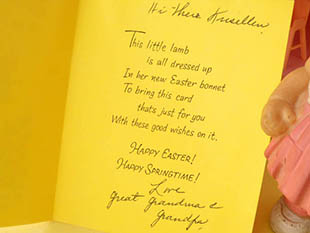 Hi There
This little lamb
is all dressed up
In her new Easter bonnet
To bring this card
thats just for you
With these good wishes on it.
HAPPY EASTER!
HAPPY SPRINGTIME!
Love
Great Grandma &
Grandpa